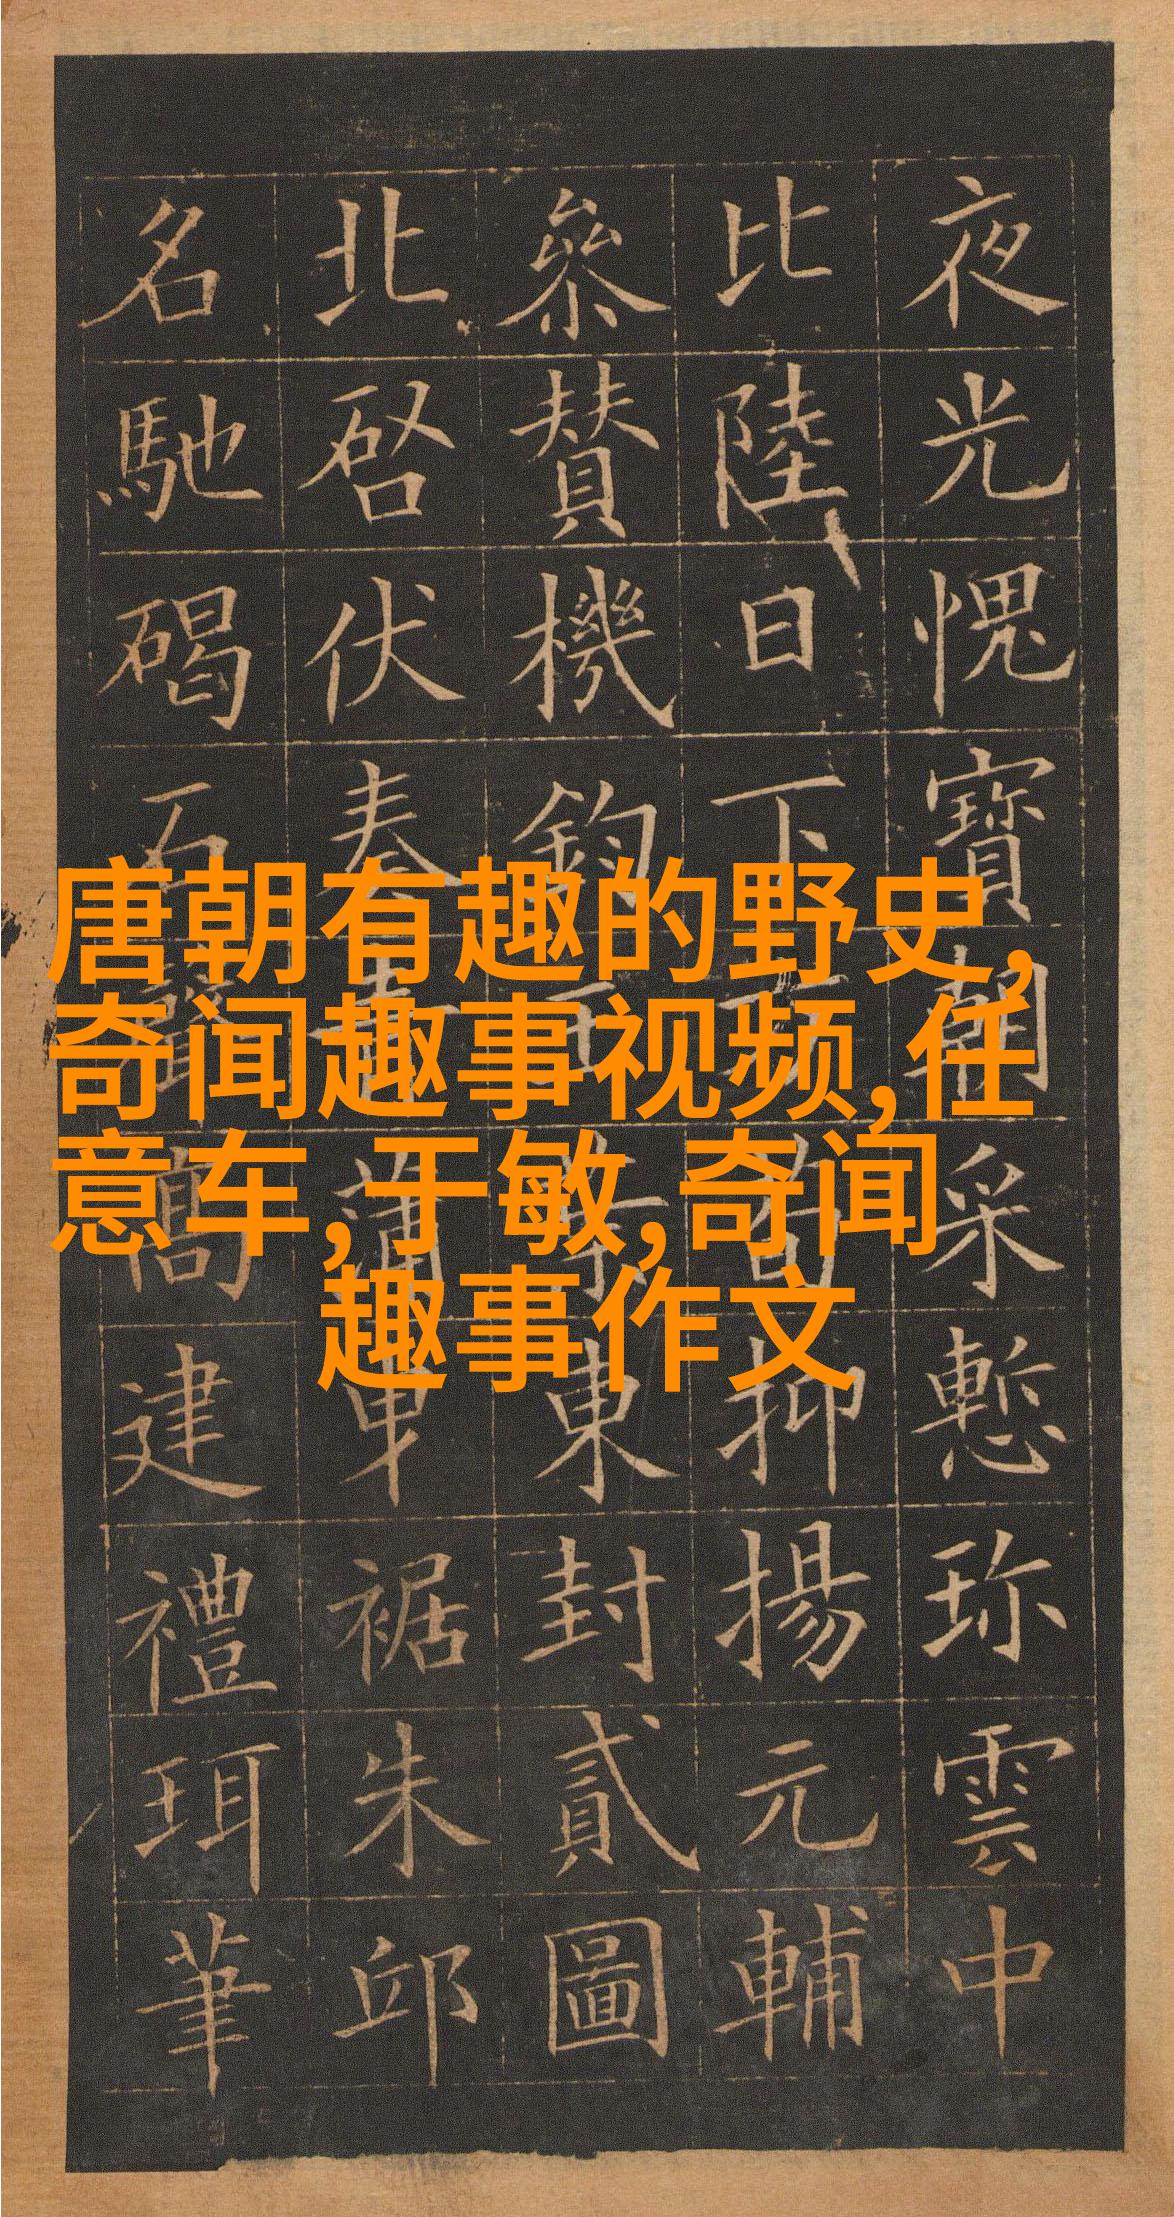 唐朝有趣的野史,
奇闻趣事视频,任
意车,于敏,奇闻
趣事作文
夜光愧寶朝采慙珎雲中
比陸日下抑揚元輔
參賛機鈞東封貳圖
北啓伏奏青蒲曳裾朱邸
名馳碣石譽高建禮珥筆